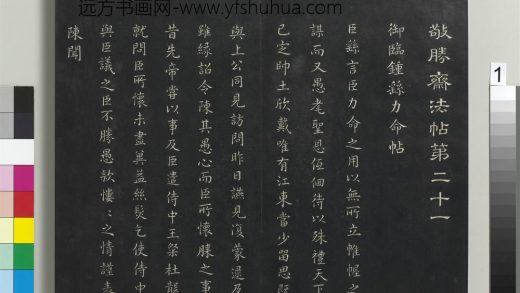 远方书画网- www.yfshuhua.com
敬勝齋法帖第二十一
御臨鍾繇力命帖
臣繇言臣力命之用以無所立帷幄之
謀而又愚耄聖恩低佪待以殊禮天下
已定帥土欣戴唯有江東當少留思既
與上公同見訪問昨日讌見復蒙逮及
雖緣詔令陳其愚心而臣所懷膝之事
昔先帝嘗以事及臣遣侍中王粲杜襲
就問臣所懷未盡冀益絲髮乞使侍中
與臣議之臣不勝愚款慺〻之情謹表
陳聞
1